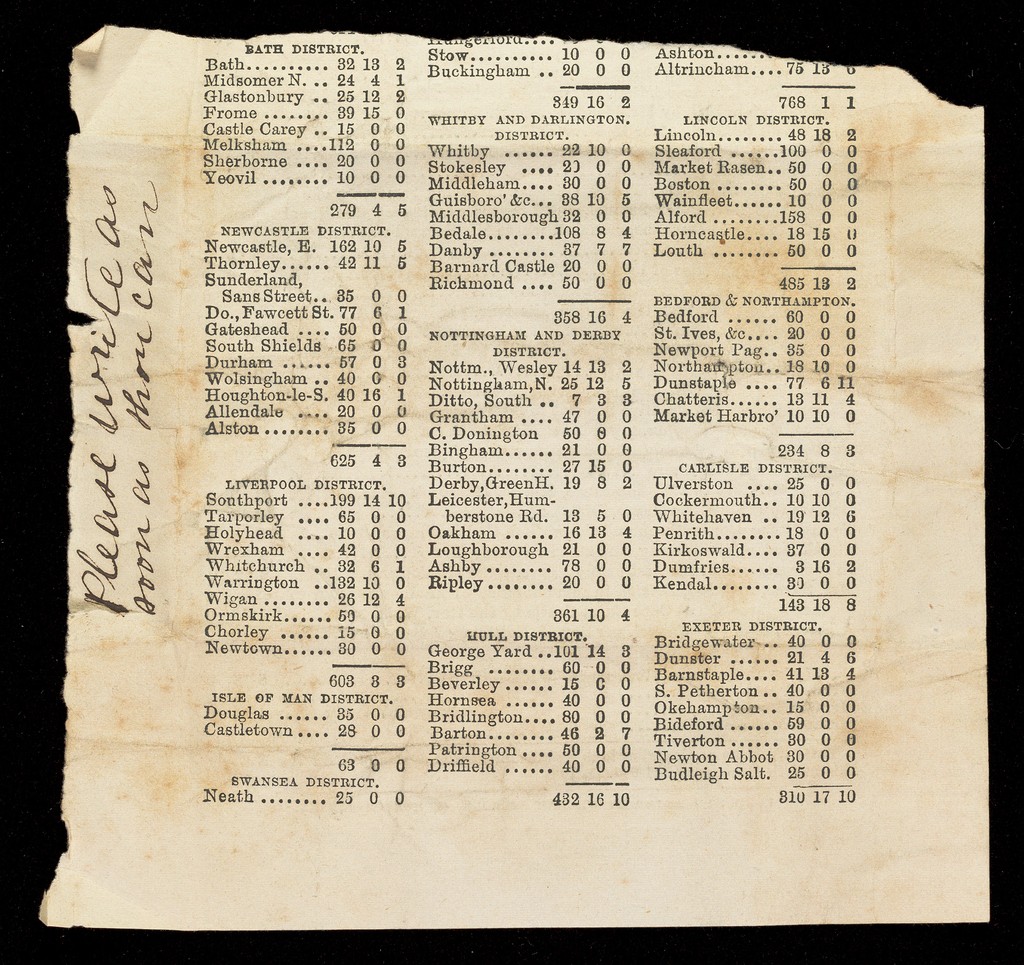 BATH DISTRICT.
Bath.......... 32 13 2
Midsomer N. .. 24 4 1
Glastonbury .. 25 12 2
Frome ........ 39 15 0
Castle Carey .. 15 0 0
Melksham ....112 0 0
Sherborne .... 20 0 0
Yeovil ........ 10 0 0
279 4 5
NEWCASTLE DISTRICT.
Newcastle, E. 162 10 5
Thornley...... 42 11 5
Sunderland,
Sans Street.. 35 0 0
Do., Fawcett St. 77 6 1
Gateshead .... 50 0 0
South Shields 65 0 0
Durham ...... 57 0 3
Wolsingham .. 40 0 0
Houghton-le-S. 40 16 1
Allendale .... 20 0 0
Alston ........ 35 0 0
625 4 3
LIVERPOOL DISTRICT.
Southport ....199 14 10
Tarporley .... 65 0 0
Holyhead .... 10 0 0
Wrexham .... 42 0 0
Whitchurch .. 32 6 1
Warrington ..132 10 0
Wigan ........ 26 12 4
Ormskirk...... 50 0 0
Chorley ...... 15 0 0
Newtown...... 30 0 0
603 3 3
ISLE OF MAN DISTRICT.
Douglas ...... 35 0 0
Castletown .... 28 0 0
63 0 0
SWANSEA DISTRICT.
Neath ........ 25 0 0
Hungerford....
Stow.......... 10 0 0
Buckingham .. 20 0 0
349 16 2
WHITBY AND DARLINGTON.
DISTRICT.
Whitby ...... 22 10 0
Stokesley .... 20 0 0
Middleham.... 30 0 0
Guisboro' &c... 38 10 5
Middlesborough 32 0 0
Bedale........108 8 4
Danby ........ 37 7 7
Barnard Castle 20 0 0
Richmond .... 50 0 0
358 16 4
NOTTINGHAM AND DERBY
DISTRICT.
Nottm., Wesley 14 13 2
Nottingham, N. 25 12 5
Ditto, South .. 7 3 3
Grantham .... 47 0 0
C. Donington 50 0 0
Bingham...... 21 0 0
Burton........ 27 15 0
Derby, Green H. 19 8 2
Leicester, Hum-
berstone Rd. 13 5 0
Oakham ...... 16 13 4
Loughborough 21 0 0
Ashby ........ 78 0 0
Ripley........ 20 0 0
361 10 4
HULL DISTRICT.
George Yard ..101 14 3
Brigg ........ 60 0 0
Beverley ...... 15 0 0
Hornsea ...... 40 0 0
Bridlington.... 80 0 0
Barton........ 46 2 7
Patrington .... 50 0 0
Driffield ...... 40 0 0
432 16 10
Ashton........
Altrincham.... 75 13 0
768 1 1
LINCOLN DISTRICT.
Lincoln........ 48 18 2
Sleaford ......100 0 0
Market Rasen.. 50 0 0
Boston ........ 50 0 0
Wainfleet...... 10 0 0
Alford ........158 0 0
Horncastle.... 18 15 0
Louth ........ 50 0 0
485 13 2
BEDFORD & NORTHAMPTON.
Bedford ...... 60 0 0
St. Ives, &c.... 20 0 0
Newport Pag.. 35 0 0
Northampton.. 18 10 0
Dunstaple .... 77 6 11
Chatteris...... 13 11 4
Market Harbro' 10 10 0
234 8 3
CARLISLE DISTRICT.
Ulverston .... 25 0 0
Cockermouth.. 10 10 0
Whitehaven .. 19 12 6
Penrith........ 18 0 0
Kirkoswald.... 37 0 0
Dumfries...... 3 16 2
Kendal........ 30 0 0
143 18 8
EXETER DISTRICT.
Bridgewater .. 40 0 0
Dunster ...... 21 4 6
Barnstaple.... 41 13 4
S. Petherton .. 40 0 0
Okehampton.. 15 0 0
Bideford ...... 59 0 0
Tiverton ...... 30 0 0
Newton Abbot 30 0 0
Budleigh Salt. 25 0 0
310 17 10
Please write as
soon as thou can